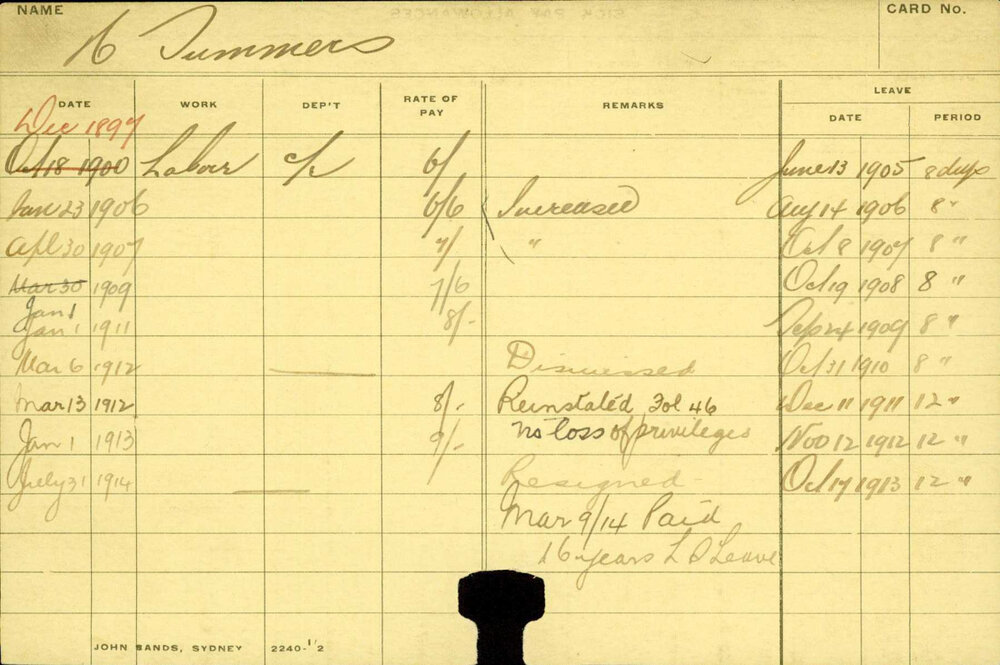 NAME
CARD No.
H Summers
DATE WORK DEP'T RATE OF PAY REMARKS LEAVE
DATE PERIOD
Dec 1897
Oct 18 1900 Labour c/s 6/ June 13 1905 8 days
Jan 23 1906 6/6 Increased Aug 14 1906 8 "
Apl 30 1907 7/ " Oct 8 1907 8 "
Mar 30 1909 7/6 Oct 19 1908 8 "
Jan 1
Jan 1 1911 8/- Sep 24 1909 8 "
Mar 6 1912 Dismissed Oct 31 1910 8 "
Mar 13 1912 8/- Reinstated Fol 46 Dec 11 1911 12 "
Jan 1 1913 9/- No loss of privileges Nov 12 1912 12 "
July 31 1914 Resigned Oct 17 1913 12 "
Mar 9/14 Paid
16 years L S Leave
JOHN SANDS, SYDNEY 2240-1/2